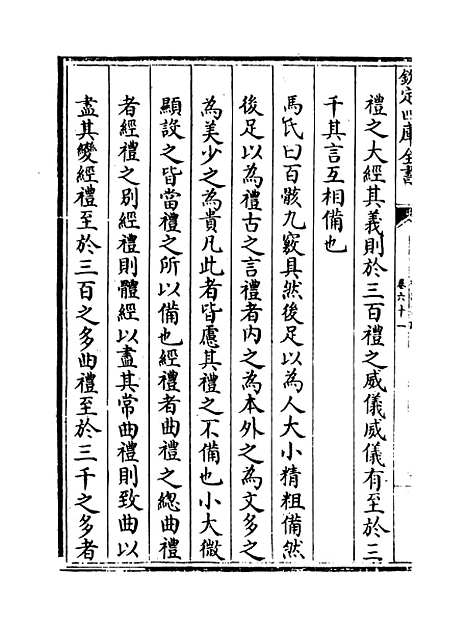 欽定四庫全書
卷六十一
禮之大經其義則於三百禮之威儀威儀有至於三
千其言互相備也
馬氏曰百骸九竅具然後足以為人大小精粗備然
後足以為禮古之言禮者内之為本外之為文多之
為美少之為貴凡此者皆慮其禮之不備也小大微
顯設之皆當禮之所以備也經禮者曲禮之緫曲禮
者經禮之别經禮則體經以盡其常曲禮則致曲以
盡其變經禮至於三百之多曲禮至於三千之多者